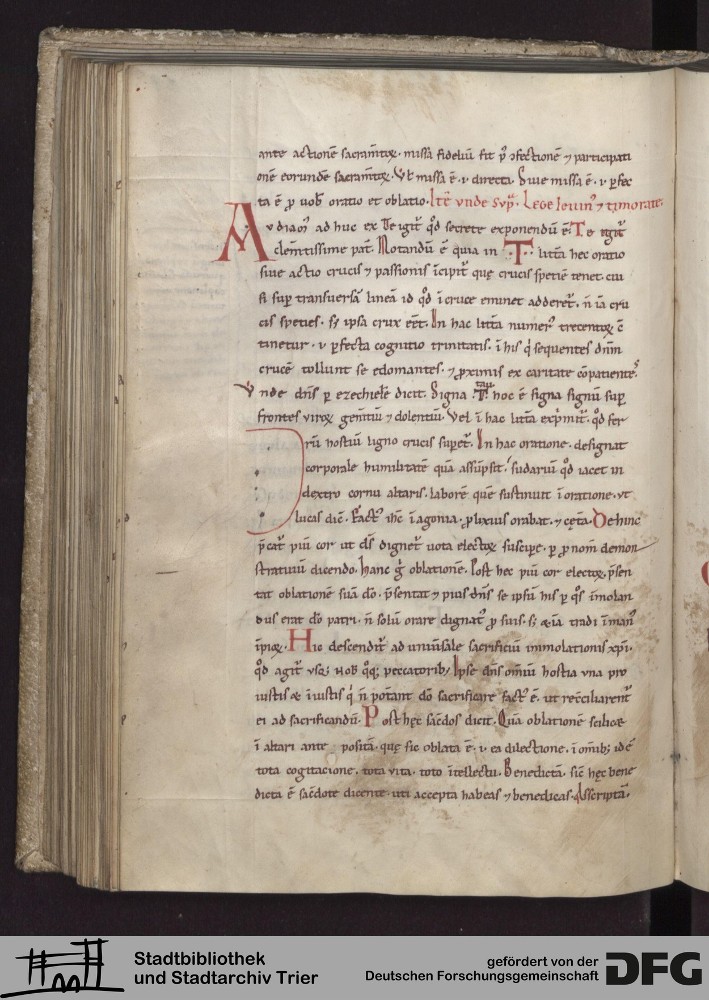 ante actionē sacram̄toꝝ. missa fideliū fit p̄ ↄfectionē ⁊ participati
onē eorundē sacram̄toꝝ. Vł missa ē .i. directa. Siue missa ē .i. ꝑfec
ta ē ꝓ uob̄ oratio et oblatio. Itē vnde sup̄. Lege Iouin᷒ ⁊ timorate.
Avdiam᷒ ad huc ex Te igit͛ qͦd secrete exponendū ē. Te igit͛
clem̄tissime pat̄. Notandū ē quia in .T. litt̄a hec oratio
siue actio crucis ⁊ passionis īcipit͛ quę crucis spetiē tenet. cui
si sup̱ transuersā lineā id qͦd ī cruce eminet adderet͛. n̄ iā cru
cis speties. sꝫ ipsa crux eēt. In hac litt̄a numer᷒ trecentoꝝ ↄ̄
tinetur .i. ꝑfecta cognitio trinitatis. ī his q̇ sequentes dn̄m
crucē tollunt se edomantes. ⁊ ꝓximis ex caritate cōpatientes᷒
Vnde dn̄s ꝑ ezechielē dicit. Signa .T. tau hoc ē signa signū sup̱
frontes viroꝝ gem̄tiū ⁊ dolentiū. Vel ī hac litt̄a exp̄mit͛. qͦd fer
rū hostiū ligno crucis sup̱et͛. In hac oratione. designat͛
corporale humilitatē quā assūpsit. sudariū qͦd iacet in
dextro cornu altaris. laborē quē sustinuit ī oratione. vt
lucas dic̄. Fact᷒ ih̄c ī agonia. ꝓlixius orabat. ⁊ cęt̄a. Dehinc
p̄cat͛ piū cor ut ds̄ dignet͛ uota electoꝝ suscip̱e. ꝑ ꝓnom̄ demon
stratiuū dicendo. Hanc ḡ oblationē. Post hec piū cor electoꝝ. p̄sen
tat oblationē suā dō. p̄sentat͛ ⁊ pius dn̄s se ipsū his ꝑ qͦs īmolan
dus erat dō patri. n̄ solū orare dignat͛ ꝓ suis. sꝫ &iā tradi ī man᷒
īpioꝝ. Hic descendit͛ ad uniu͛sale sacrificiū immolationis xp̄i.
qͦd agit͛ vsqꝫ nob̄ qͦqꝫ peccatoribꝫ. Ipse dn̄s om̄iū hostia vna pro
iustis & īiustis q̇ n̄ pot͛ant dō sacrificare fact᷒ ē. ut rec̄ciliarent͛
ei ad sacrificandū. Post hęc sac̄dos dicit. Quā oblationē scilicet
ī altari ante posita. quę sic oblata ē .i. ea dilectione. ī om̄ibꝫ id ē
tota cogitacione. tota vita. toto ītellectu. Benedictā. sic̄ hęc bene
dicta ē sac̄dote dicente. uti accepta habeas ⁊ benedicas. Asscriptā.
Stadtbibliothek
und Stadtarchiv Trier
gefördert von der
Deutschen Forschungsgemeinschaft
DFG